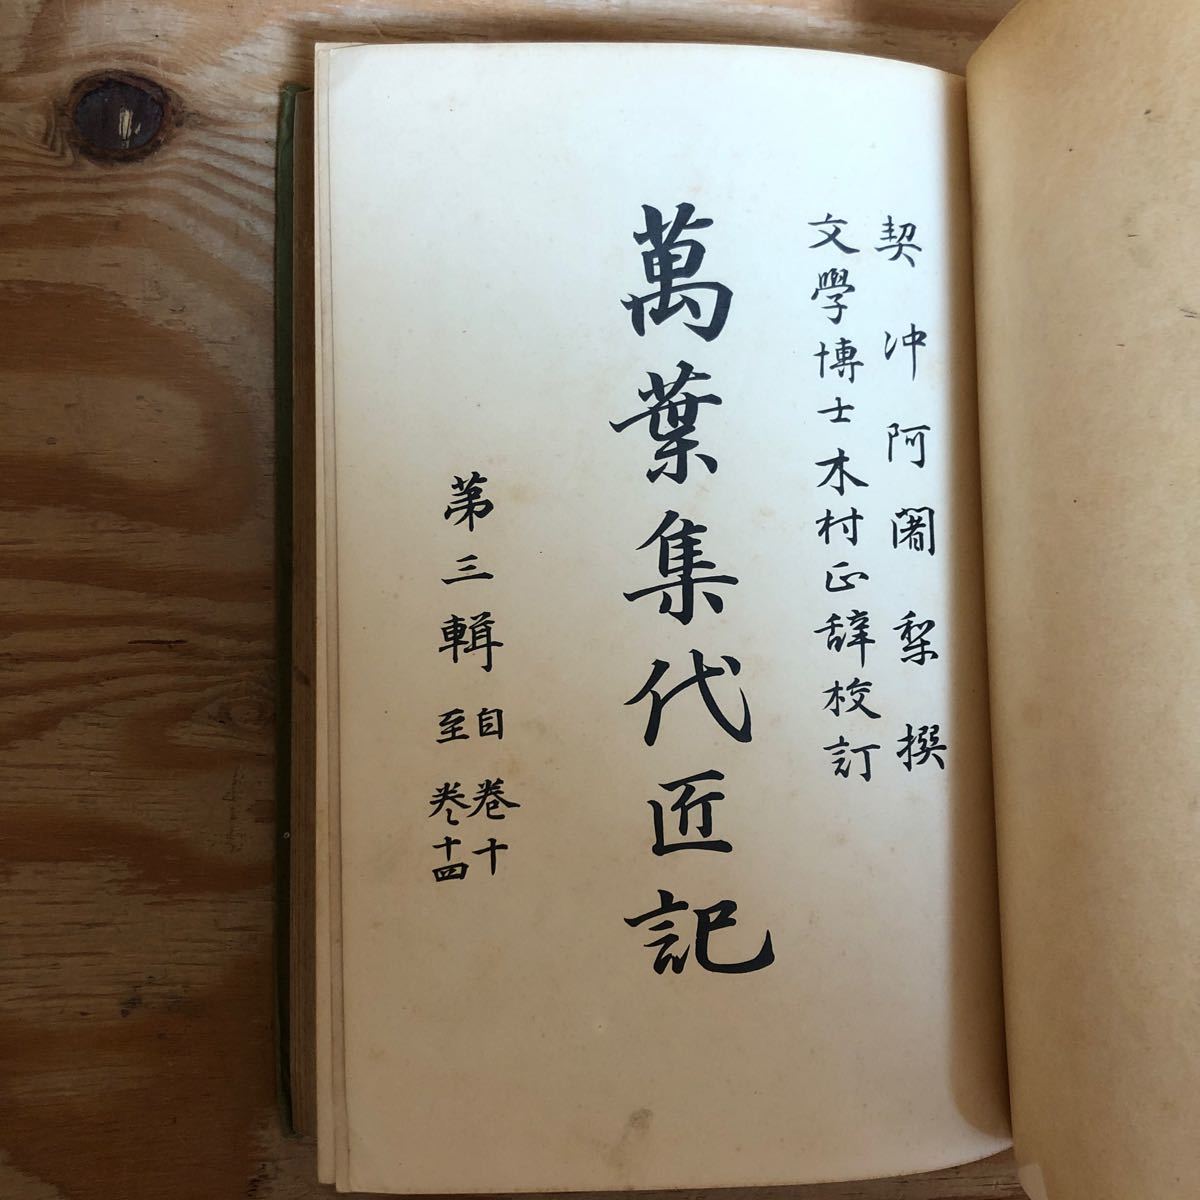 契冲阿闍梨撰
文學博士木村正辞校訂
萬葉集代匠記
第三輯 自卷十
至卷十四